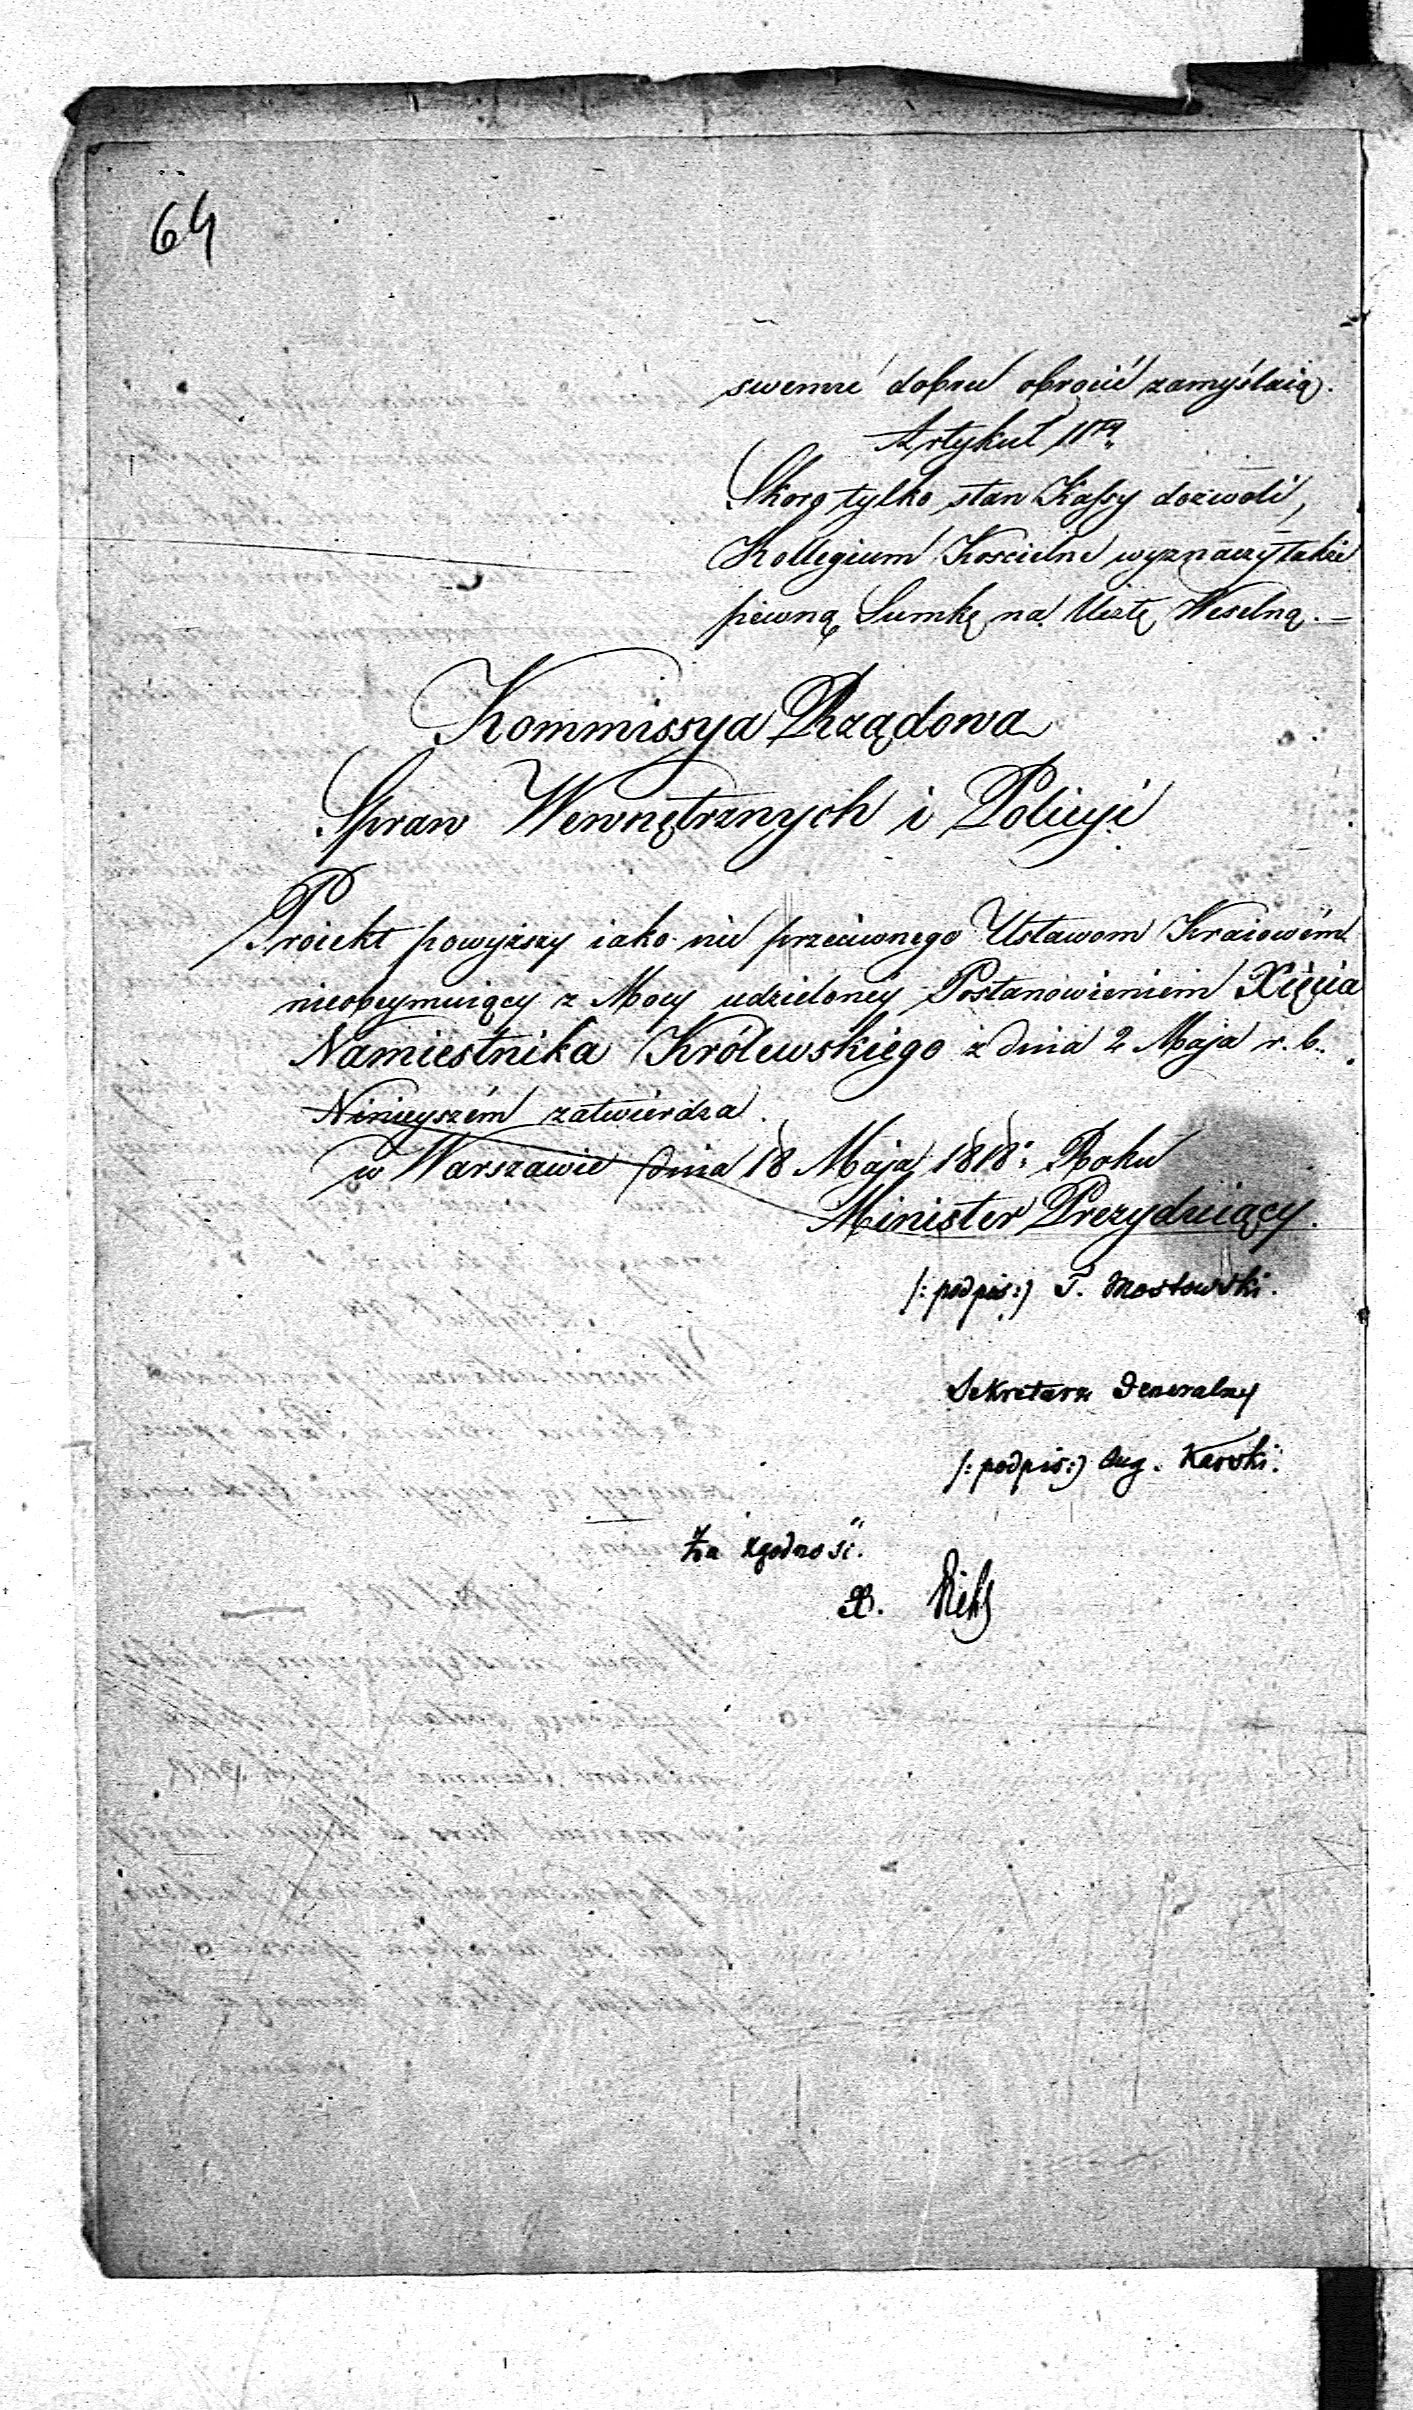 64
swemu dobru obrócić zamyślaią.
Artykuł 11ty
Skoro tylko stan Kassy dozwoli,
Kollegium Kościelne wyznaczy także
pewną Sumkę na Ucztę Weselną. =
Kommissya Rządowa
Spraw Wewnętrznych i Policyi
Proiekt powyższy iako nic przeciwnego Ustawom Kraiowém
nieobeymuiący z Mocy udzieloney Postanowieniem Xięcia
Namiestnika Królewskiego z dnia 2 Maja r. b.
Ninieyszém zatwierdza.
w Warszawie dnia 18 Maja 1818: Roku
Minister Prezyduiący.
/: podpis:) T. Mostowski.
Sekretarz Generalny
/: podpis:) Aug. Karski.
Za zgodność.